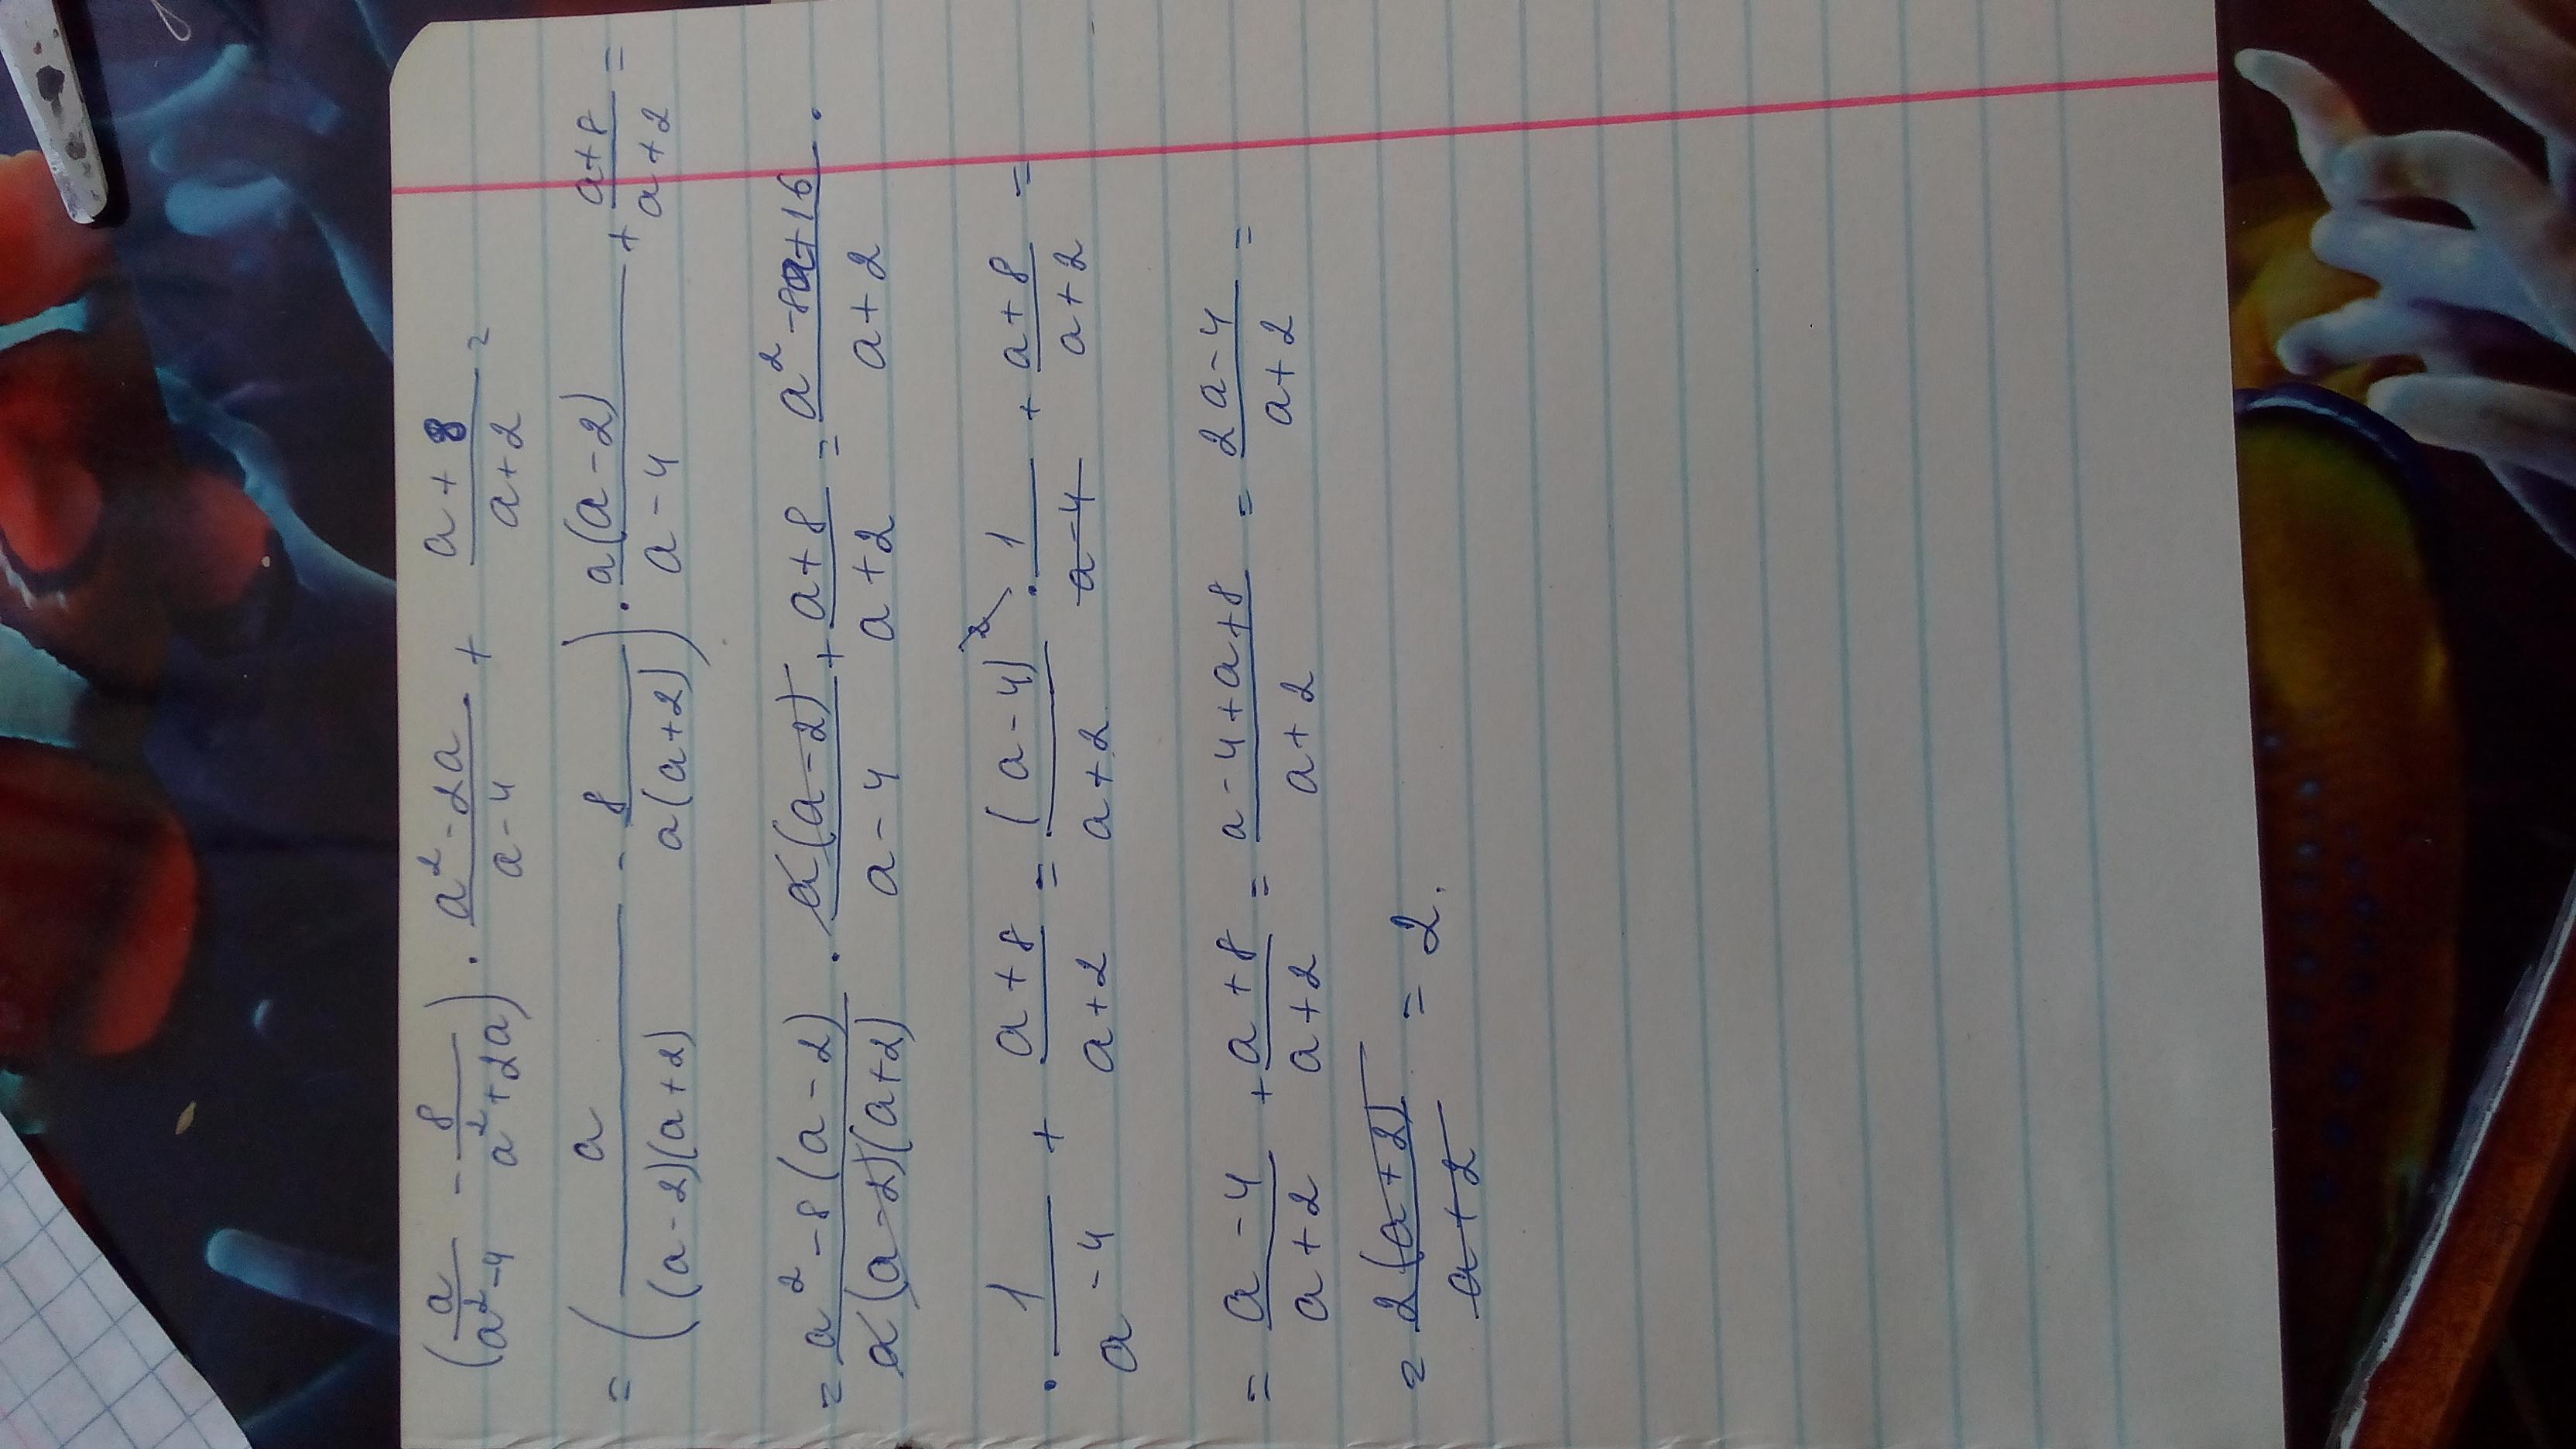 (a/(a²-4) - 8/(a²+2a)) · (a²-2a)/(a-4) + (a+8)/(a+2) =
= (a/((a-2)(a+2)) - 8/(a(a+2))) · a(a-2)/(a-4) + (a+8)/(a+2) =
= (a²-8(a-2))/(a(a-2)(a+2)) · a(a-2)/(a-4) + (a+8)/(a+2) = (a²-8a+16)/(a+2) ·
· 1/(a-4) + (a+8)/(a+2) = (a-4)²/(a+2) · 1/(a-4) + (a+8)/(a+2) =
= (a-4)/(a+2) + (a+8)/(a+2) = (a-4+a+8)/(a+2) = (2a-4)/(a+2) =
= 2(a+2)/(a+2) = 2.